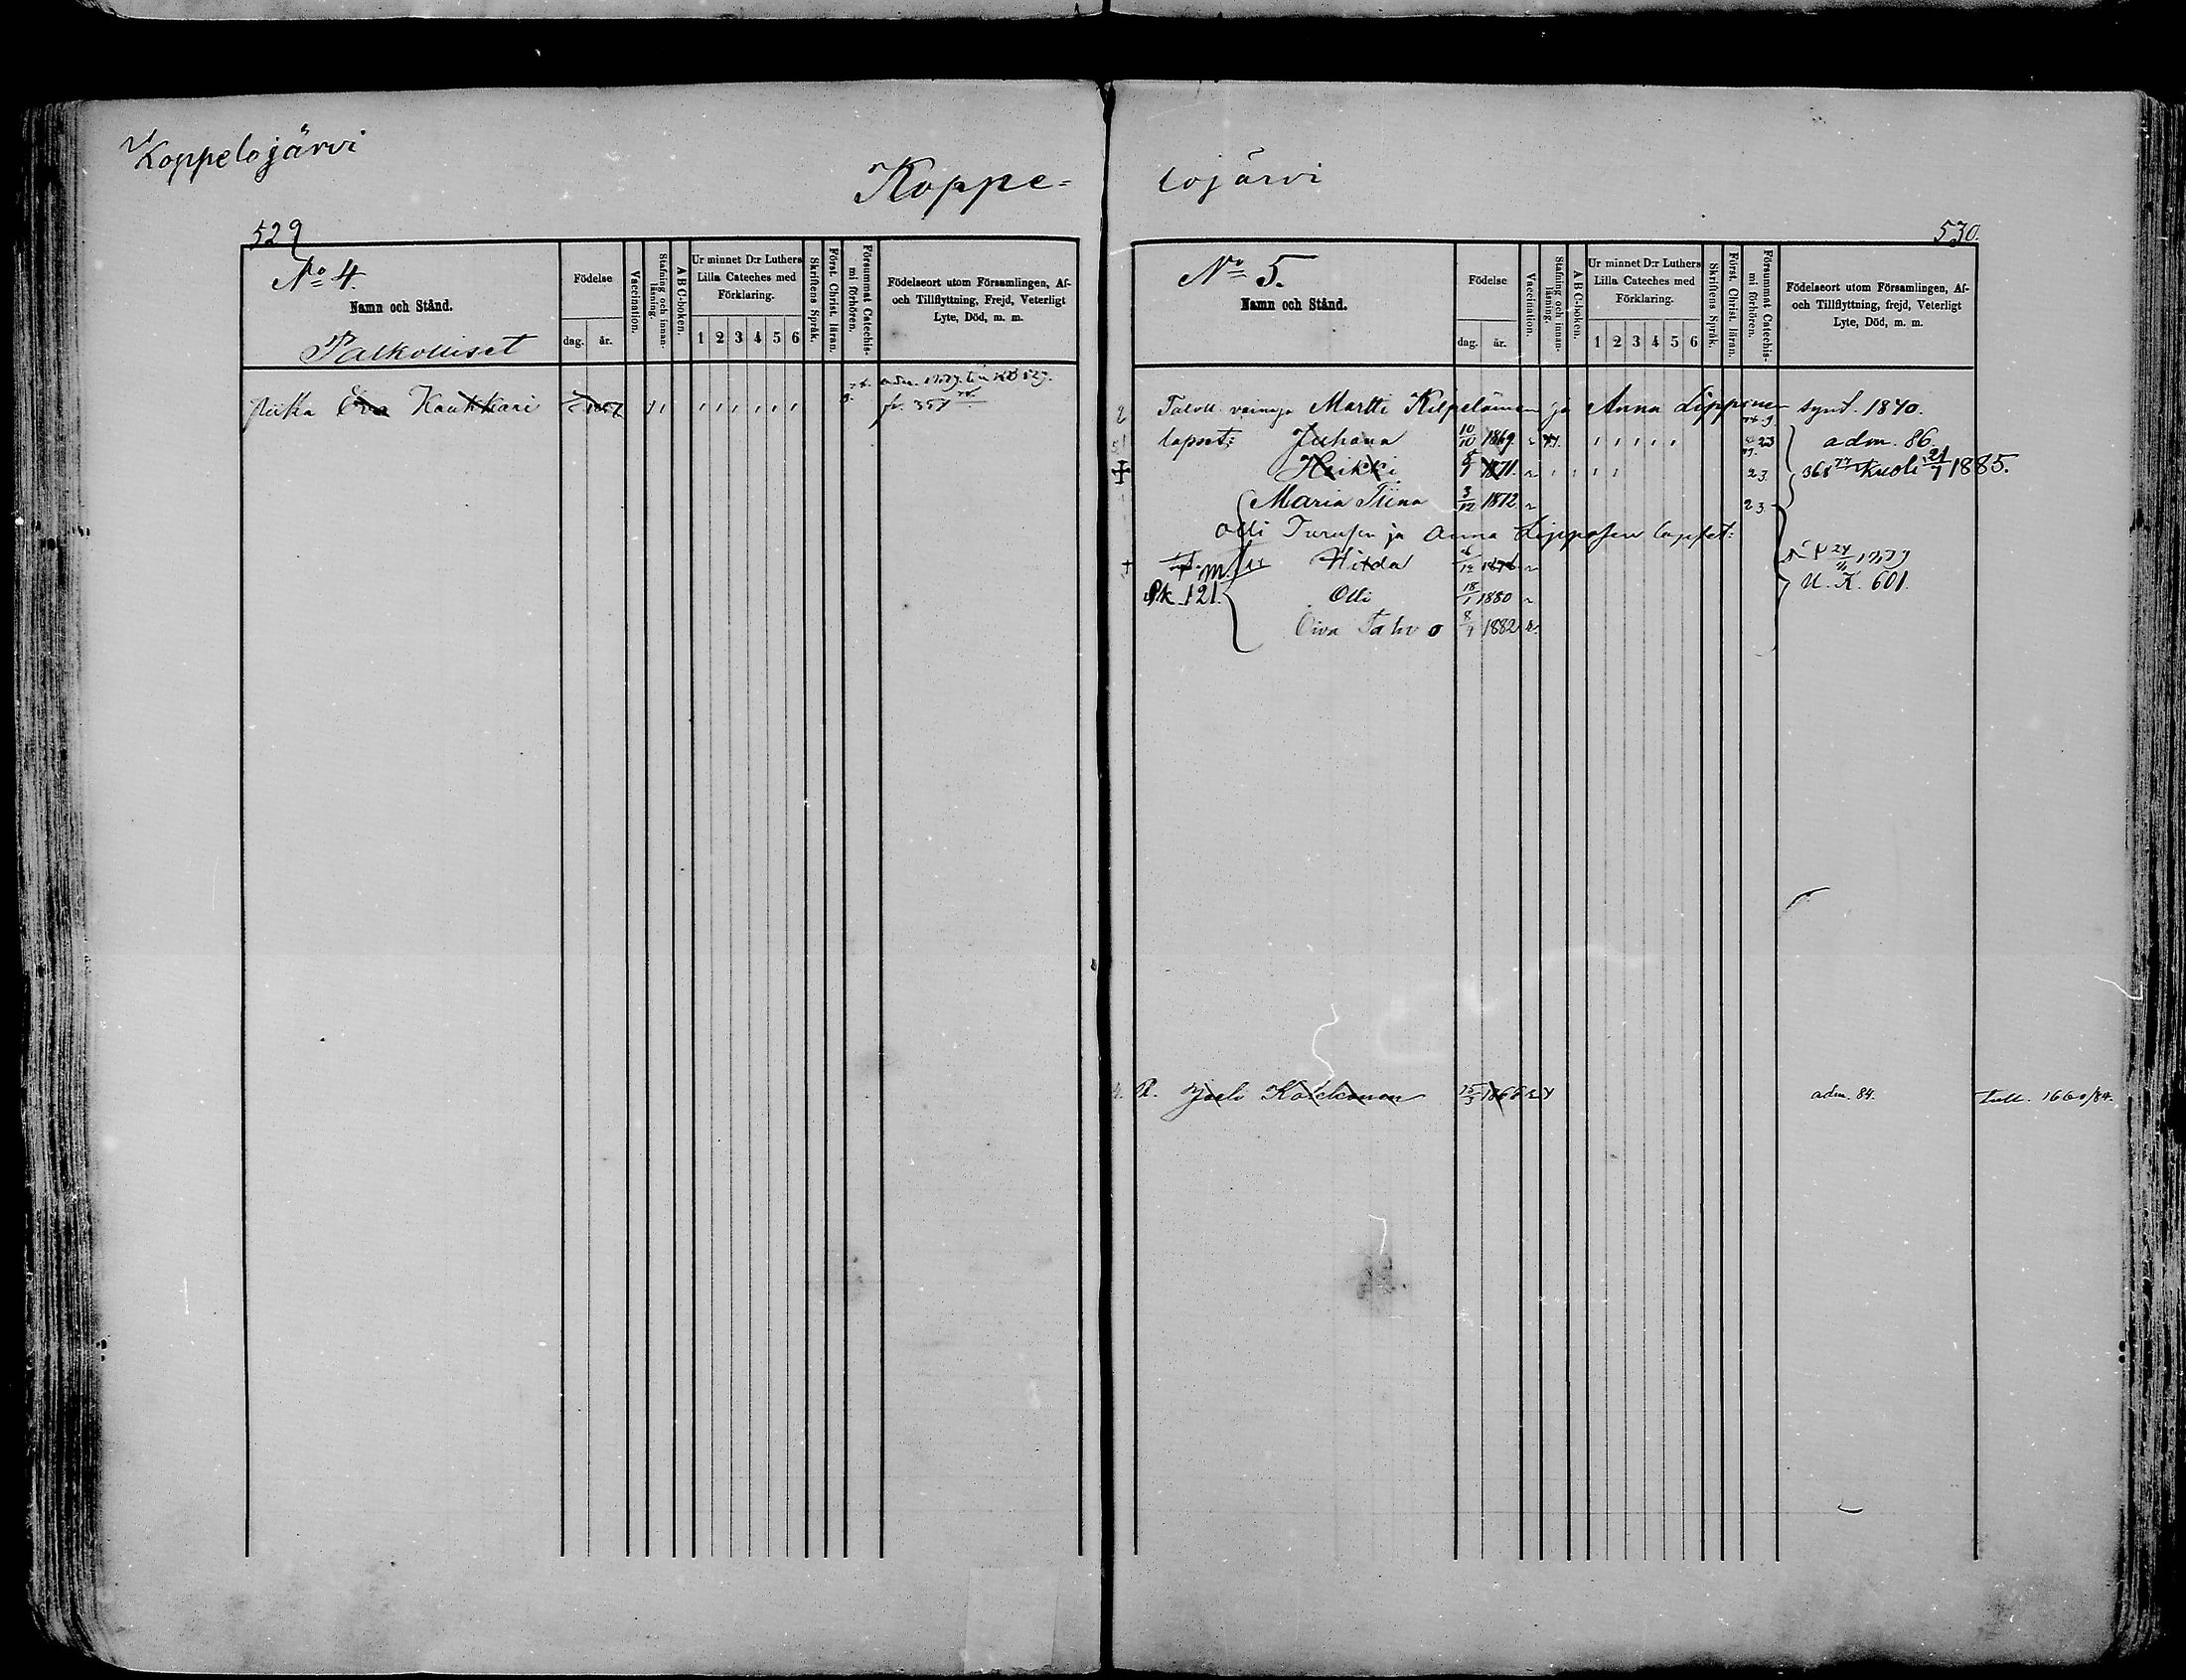 Koppelojärvi
Koppe=
529
No 4.
Namn och Stånd.
Palkolliset
Födelse
dag. år.
Vaccination.
Stafning och innan-läsning.
ABC-boken.
Ur minnet D:r Luthers
Lilla Cateches med
Förklaring.
1 2 3 4 5 6
Skriftens Språk.
Först. Christ. läran.
Försummat Catechis-mi förhören.
Födelseort utom Församlingen, Af-
och Tillflyttning, Frejd, Veterligt
Lyte, Död, m. m.
Piika Eva Kaukkari 1857
fr. 354
lojärvi
530.
No 5.
Namn och Stånd.
Födelse
dag. år.
Vaccination.
Stafning och innan-läsning.
ABC-boken.
Ur minnet D:r Luthers
Lilla Cateches med
Förklaring.
1 2 3 4 5 6
Skriftens Språk.
Först. Christ. läran.
Försummat Catechis-mi förhören.
Födelseort utom Församlingen, Af-
och Tillflyttning, frejd, Veterligt
Lyte, Död, m. m.
2 Martti Kilpeläinen ja Anna Lipponen synt. 1840.
lapset: Juhana 10/10 1869. 23 adm. 86.
Heikki 1871. 23. 368 kuoli 21/7 1885.
Maria Tiina 3/12 1872 23
Olli Turusen ja Anna Lipposen lapset:
Hilda 1878
Pk 121. Olli 18/1 1880 U. K. 601.
Oiva Tahvo 1882
R. Kolehmonen 1866 adm. 84. 1660/84.